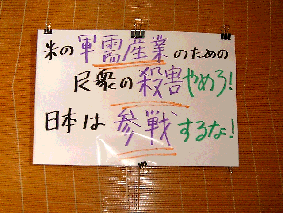 米の軍需産業のための
民衆の殺害やめろ!
日本は参戦するな!